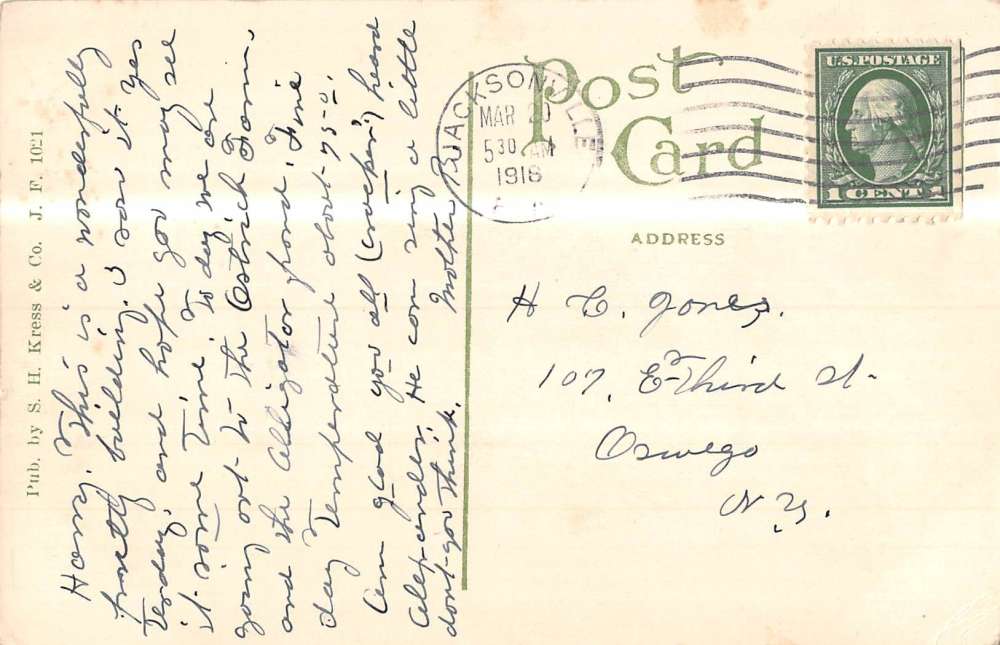 Pub. by S. H. Kress & Co. J. F. 1021
Harry. This is a wonderfully
pretty building. I saw it Yes
terday. and hope you may see
it some time. To day we are
going out to the Ostrich Farm.
and the Alligator pond. Fine
day Temperature about 75-0.
Am glad you all (
heard
Alexander. He can sing a little
dont-you Think.
Mother
Post
Card
JACKSONVILLE
MAR 20
530 AM
1918
U.S. POSTAGE
1 CENT 1
ADDRESS
H C. Jones.
107. E-Third St-
Oswego
N. Y.